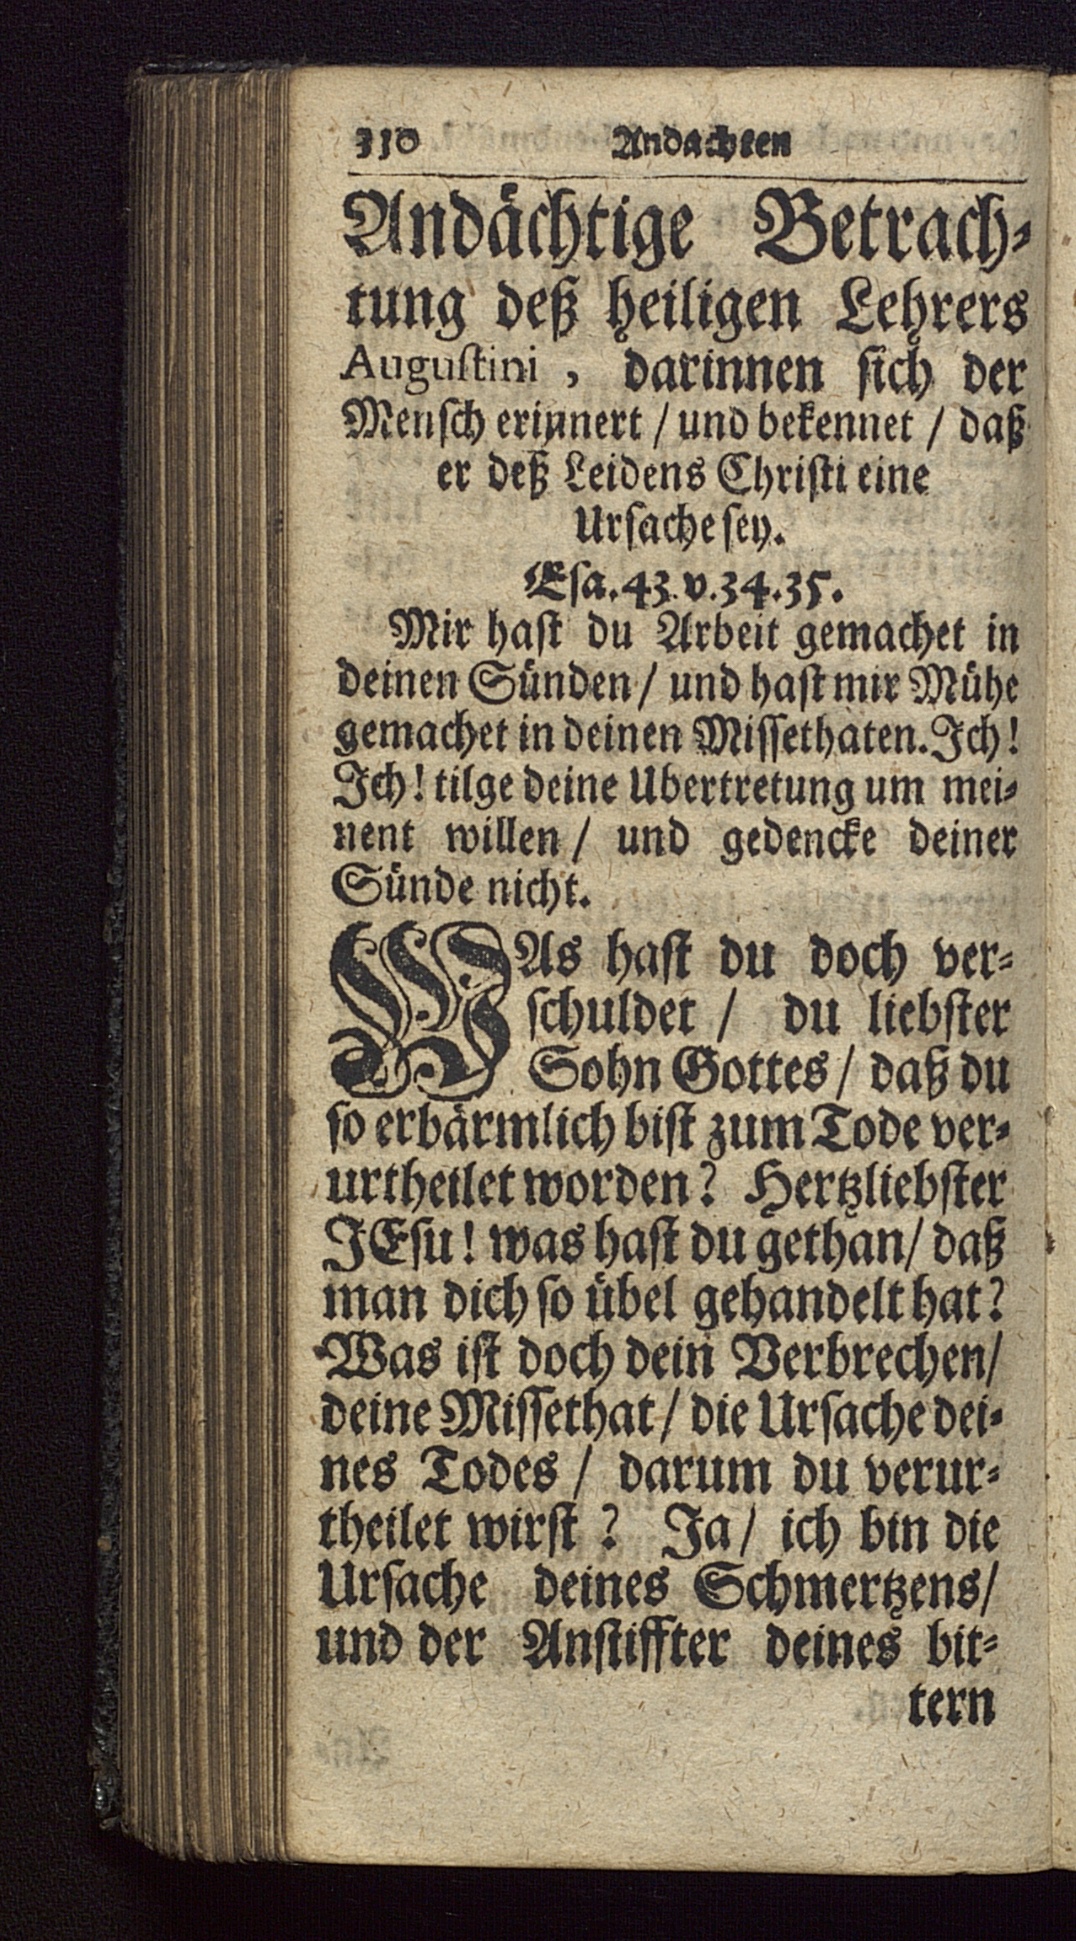 310 Andachten
Andächtige Betrach-
tung deß heiligen Lehrers
Augustini, darinnen sich der
Mensch erinnert / und bekennet / daß
er deß Leidens Christi eine
Ursache sey.
Esa. 43. v. 34. 35.
Mir hast du Arbeit gemachet in
deinen Sünden / und hast mir Mühe
gemachet in deinen Missethaten. Ich!
Ich! tilge deine Ubertretung um mei-
nent willen / und gedencke deiner
Sünde nicht.
WAs hast du doch ver-
schuldet / du liebster
Sohn Gottes / daß du
so erbärmlich bist zum Tode ver-
urtheilet worden? Hertzliebster
JEsu! was hast du gethan / daß
man dich so übel gehandelt hat?
Was ist doch dein Verbrechen /
deine Missethat / die Ursache dei-
nes Todes / darum du verur-
theilet wirst? Ja / ich bin die
Ursache deines Schmertzens /
und der Anstiffter deines bit-
tern